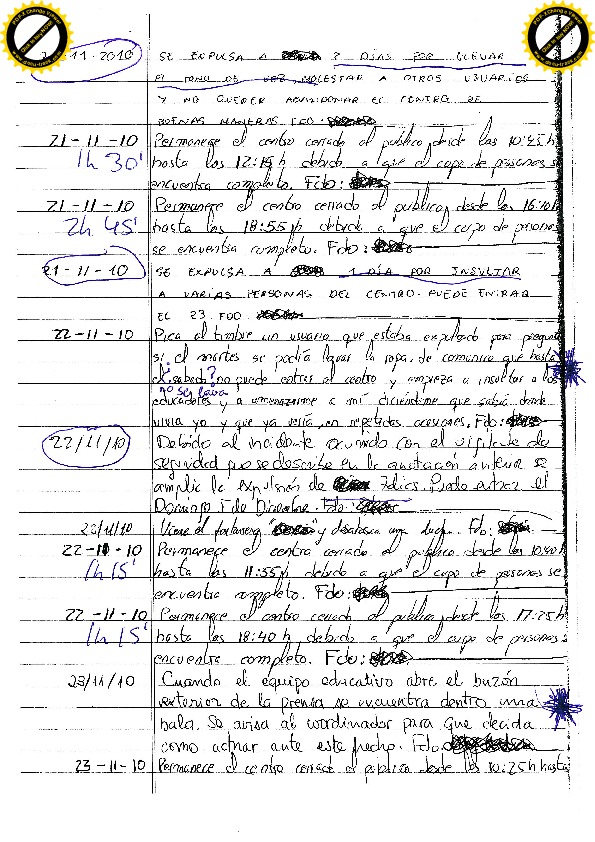 11-2010 SE EXPULSA A 2 DÍAS POR ELEVAR
EL TONO DE VOZ, MOLESTAR A OTROS USUARIOS
Y NO QUERER ABANDONAR EL CENTRO DE
BUENAS MANERAS FDO:
21-11-10 Permanece el centro cerrado al publico, desde las 10:45h
1h 30' hasta las 12:15h debido a que el cupo de personas se
encuentra completo. Fdo:
21-11-10 Permanece el centro cerrado al publico, desde las 16:10h
2h 45' hasta las 18:55h debido a que el cupo de personas
se encuentra completo. Fdo:
21-11-10 SE EXPULSA A 1 DÍA POR INSULTAR
A VARIAS PERSONAS DEL CENTRO. PUEDE ENTRAR
EL 23. FDO:
22-11-10 Pica al timbre un usuario que estaba expulsado para
si el martes se podía lavar la ropa, de comunico que hasta
el sabado? no puede entrar al centro y empieza a insultar a los
no se lava
educadores y a amenazarme a mí diciéndome que sabía donde
vivia yo y que ya vería, en repetidas ocasiones. Fdo:
22/11/10 Debido al incidente ocurrido con el vigilante de
seguridad que se describe en la anotación anterior se
amplía la expulsión de Puede entrar el
Domingo de Diciembre. Fdo:
Viene el y una ducha. Fdo:
22-11-10 Permanece el centro cerrado al publico desde las 10:40h
1h 15' hasta las 11:55h debido a que el cupo de personas se
encuentra completo. Fdo:
22-11-10 Permanece el centro cerrado al publico, desde las 17:25h
1h 15' hasta las 18:40h debido a que el cupo de personas
encuentra completo. Fdo:
23/11/10 Cuando el equipo educativo abre el buzón
exterior de la prensa se encuentra dentro una
bala. Se avisa al coordinador para que decida
como actuar ante este hecho. Fdo
23-11-10 Permanece el centro cerrado al publico desde las 10:25h hasta